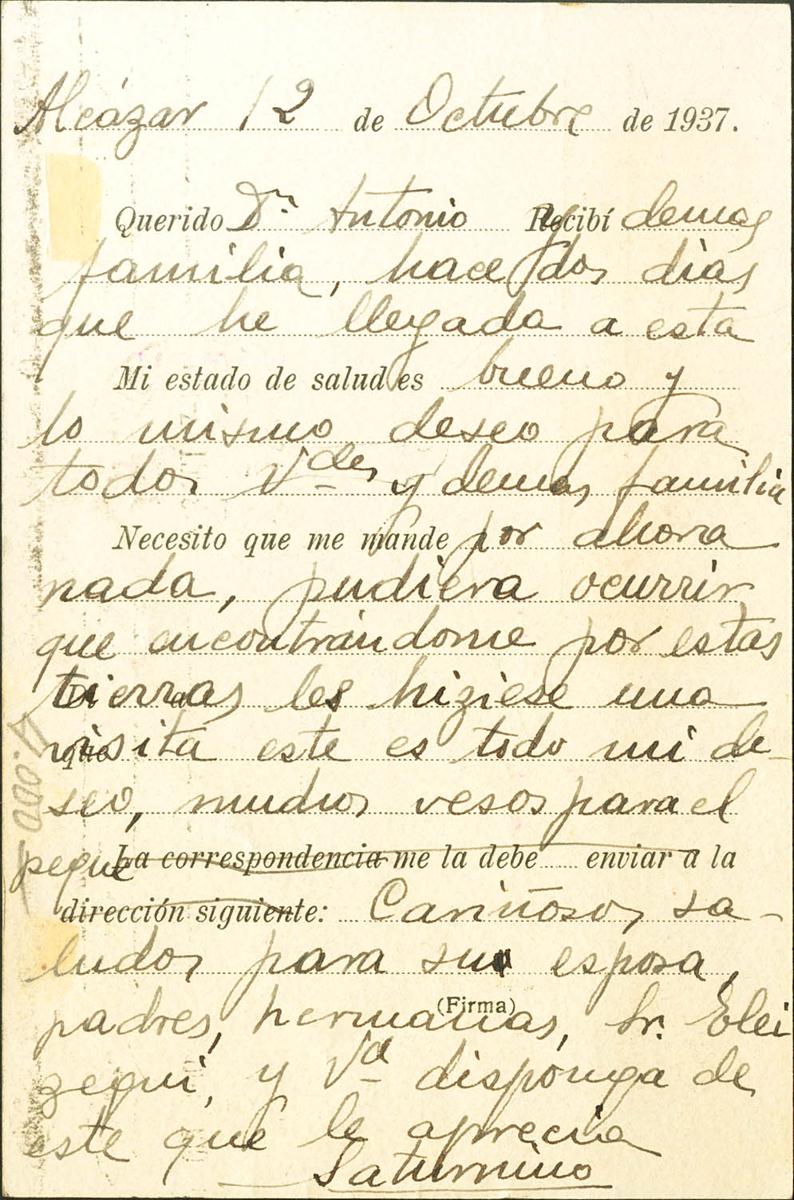 Alcázar 12 de Octubre de 1937.
Querido Dn Antonio Recibí y demas
familia, hace dos dias
que he llegada a esta
Mi estado de salud es bueno y
lo mismo deseo para
todos Vdes y demas familia
Necesito que me mande por ahora
nada, pudiera ocurrir
que encontrándome por estas
tierras les hiziese una
visita este es todo mi de-
seo, muchos vesos para el
peque La correspondencia me la debe enviar a la
dirección siguiente: Cariñosos sa-
ludos para su esposa,
(Firma)
padres, hermanas, Sr. Elei
zegui, y Vd disponga de
este que le aprecia
Saturnino